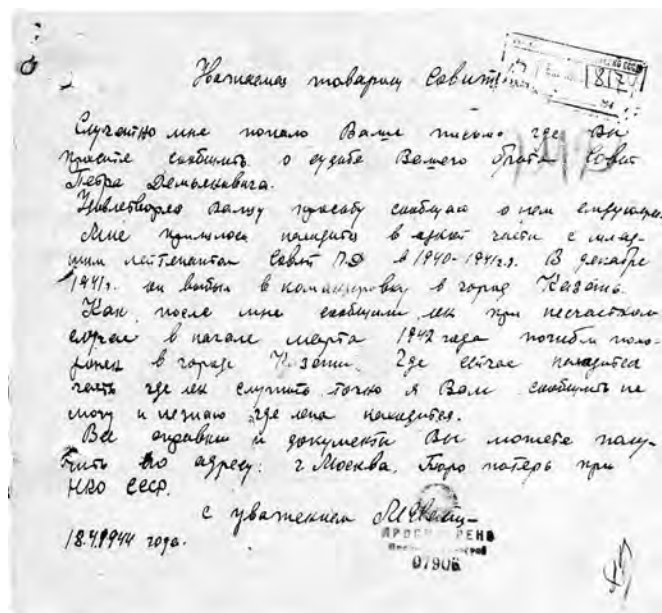 Уважаемый товарищ Савит
817
Случайно мне попало Ваше письмо где Вы
просите сообщить о судьбе Вашего брата Совит
Петра Демьяновича.
Удовлетворяя Вашу просьбу сообщаю о нем следующее.
Мне пришлось находится в одной части с млад-
шим лейтенантом Совит П.Д в 1940-1941г.г. В декабре
1941г. он выбыл в командировку в город Казань.
Как после мне сообщили он при несчастном
случае в начале марта 1942 года погиб и похо-
ронен в городе Казани. Где сейчас находится
часть где он служит точно я Вам сообщить не
могу и не знаю где она находится.
Все справки и документы Вы можете полу-
чить по адресу: г Москва. Бюро потерь при
НКО СССР.
с уважением
18.4.1944 года.
ПРОСМОТРЕНО
07906